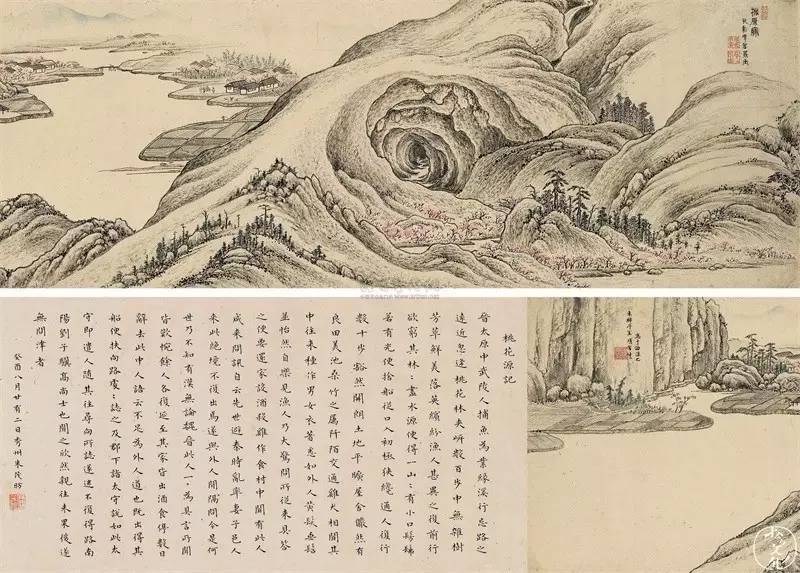 桃源圖
桃花源記
晉太原中武陵人捕魚為業緣溪行忘路之
遠近忽逢桃花林夾岍數百步中無雜樹
芳草鮮美落英繽紛漁人甚異之復前行
欲窮其林〻盡水源便得一山〻有小口髣髴
若有光便捨船從口入初極狹纔通人復行
數十步豁然開朗土地平曠屋舍儼然有
良田美池桑竹之屬阡陌交通雞犬相聞其
中往來種作男女衣著悉如外人黃髮垂髫
並怡然自樂見漁人乃大驚問所從來具答
之便要還家設酒殺雞作食村中聞有此人
咸來問訊自云先世避秦時亂率妻子邑人
來此絕境不復出焉遂與外人間隔問今是何
世乃不知有漢無論魏晉此人一〻為具言所聞
皆歎惋餘人各復延至其家皆出酒食停數日
辭去此中人語云不足為外人道也既出得其
船便扶向路處〻誌之及郡下詣太守說如此太
守即遣人隨其往尋向所誌遂迷不復得路南
陽劉子驥高尚士也聞之欣然親往未果後遂
無問津者
癸酉八月廿有二日秀州朱茂昉